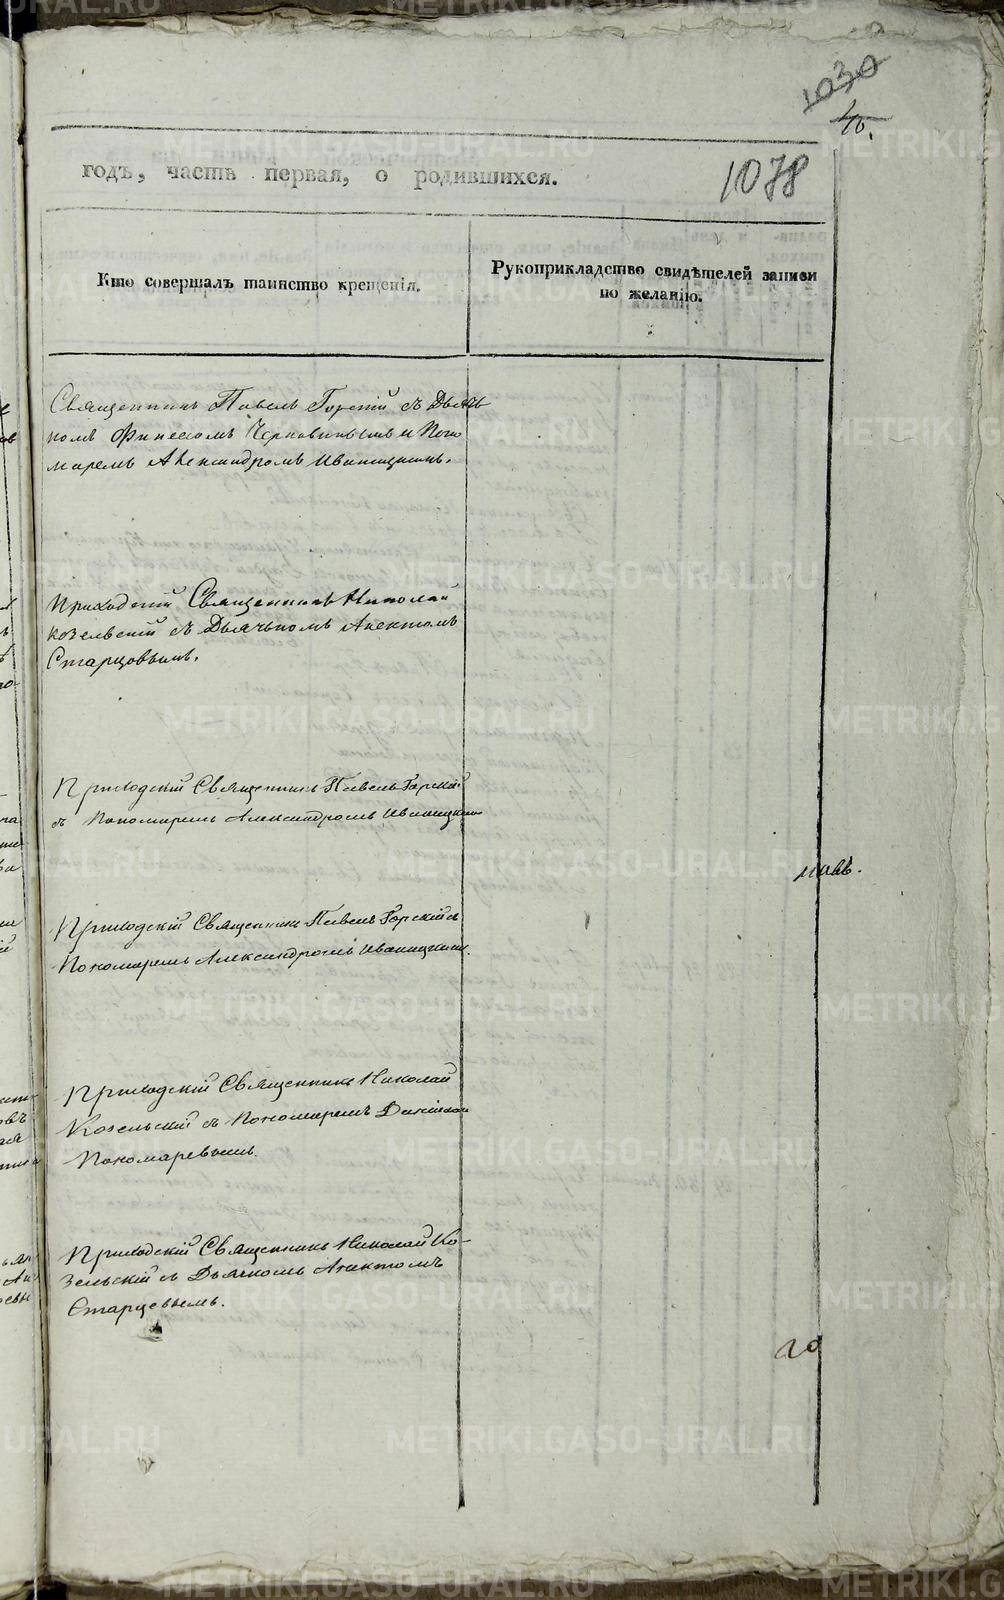 1030
40.
1078
годъ, часть первая, о родившихся.
Кто совершалъ таинство крещенія.
Рукоприкладство свидѣтелей записи
по желанію.
Священникъ Павелъ Горскій съ Дьяч
комъ Финесомъ Черновинымъ и Поно
маремъ Александромъ Иваницкимъ.
Приходскій Священникъ Николай
Козельскій съ Дьячкомъ
Старцовымъ.
Приходскій Священникъ Павелъ Горскій
съ Пономаремъ Александромъ Иваницким
Приходскій Священникъ Павелъ Горскій съ
Пономаремъ Александромъ Иваницким.
Приходскій Священникъ Николай
Козельскій съ Пономаремъ
Пономаревымъ.
Приходскій Священникъ Николай Ко-
зельскій съ Дьячкомъ
Старцевымъ.
METRIKI.GASO-URAL.RU